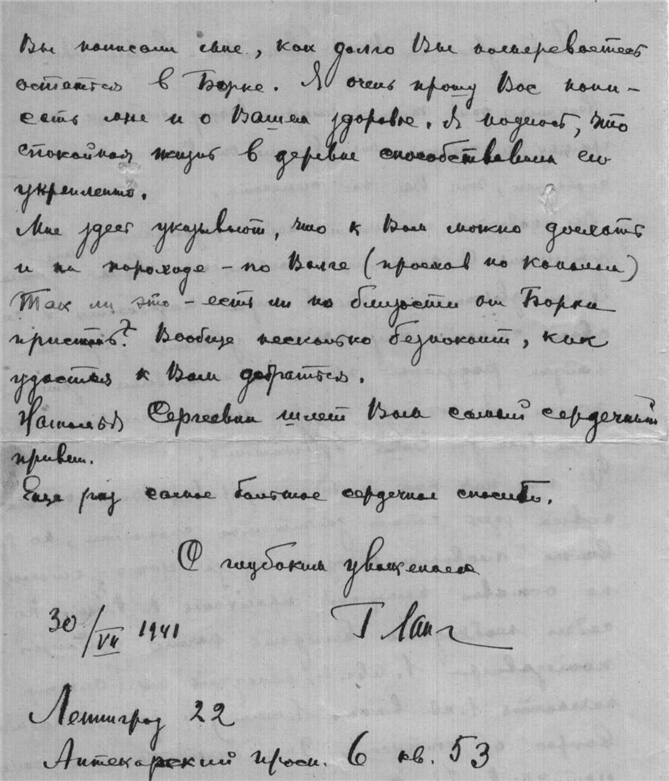 Вы написали мне, как долго Вы намереваетесь
остаться в Борке. Я очень прошу Вас напи-
сать мне и о Вашем здоровье. Я надеюсь, что
спокойная жизнь в деревне способствовала его
укреплению.
Мне здесь указывают, что к Вам можно доехать
и на пароходе – по Волге (проехав по каналам)
Так ли это – есть ли по близости от Борка
пристань? Вообще несколько безпокоит, как
удастся к Вам добраться.
Наталья Сергеевна шлет Вам самый сердечный
привет.
Еще раз самое большое сердечное спасибо.
С глубоким уважением
Г Ланг
30/VII 1941
Ленинград 22
Аптекарский просп. 6 кв. 53